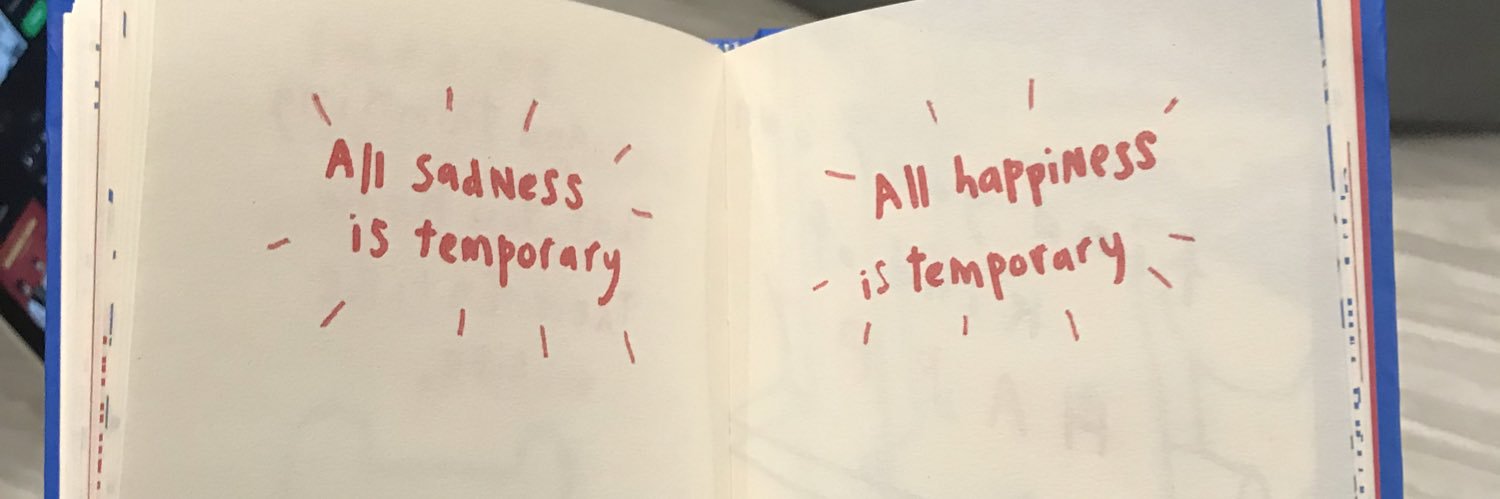 All sadness
is temporary
All happiness
is temporary